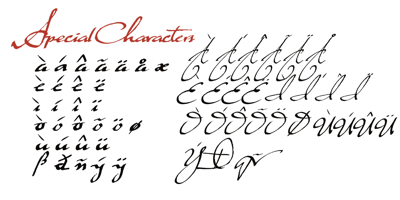 Special Characters
à á â ã ä å æ
è é ê ë
ì í î ï
ò ó ô õ ö ø
ù ú û ü
ß ñ ý ÿ
À Á Â Ã Ä Å
È É Ê Ë Ì Í Î Ï
Ò Ó Ô Õ Ö Ø Ù Ú Û Ü
Ý Ñ